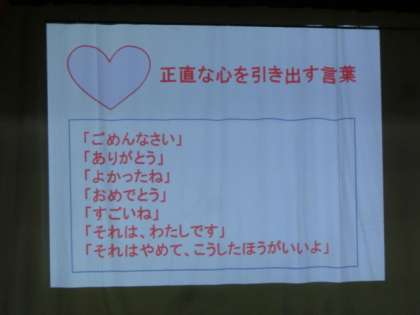 正直な心を引き出す言葉
「ごめんなさい」
「ありがとう」
「よかったね」
「おめでとう」
「すごいね」
「それは、わたしです」
「それはやめて、こうしたほうがいいよ」